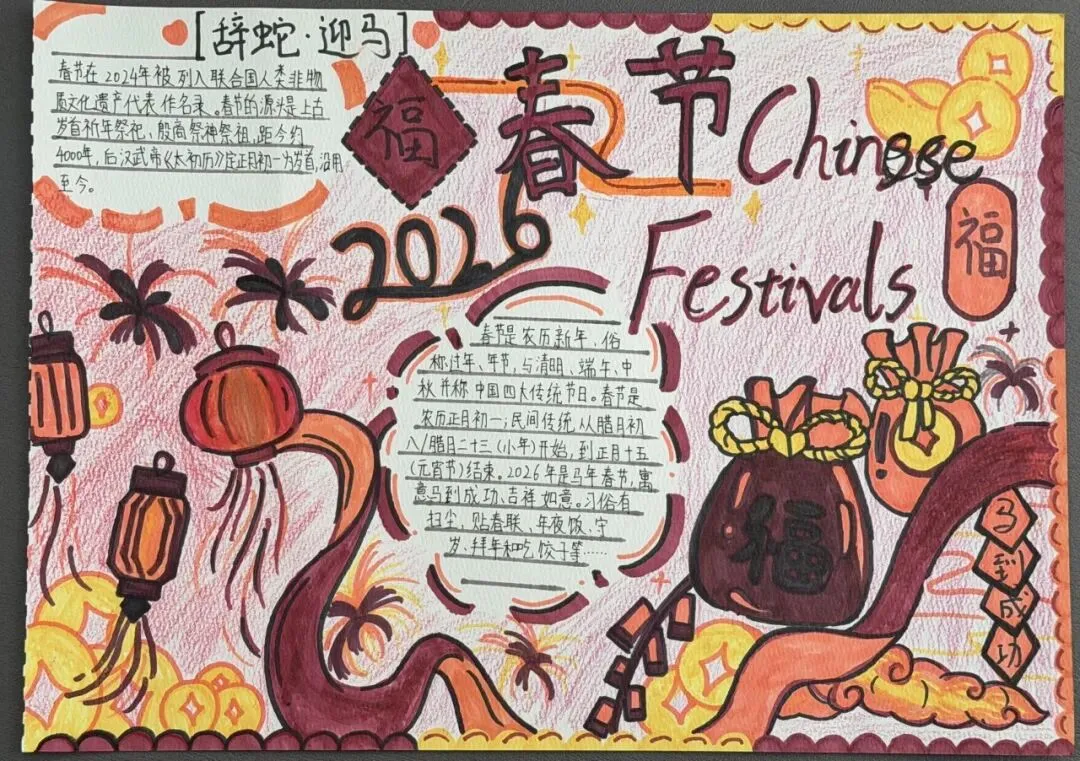 [辞蛇·迎马]
春节在2024年被列入联合国人类非物
质文化遗产代表作名录。春节的源头是上古
岁首祈年祭祀、殷商祭神祭祖,距今约
4000年,后汉武帝《太初历》定正月初一为岁首,沿用
至今。
福
春节
Chinese
2026
Festivals
福
春节是农历新年、俗
称过年、年节,与清明、端午、中
秋并称中国四大传统节日。春节是
农历正月初一;民间传统从腊月初
八/腊月二十三(小年)开始,到正月十五
(元宵节)结束。2026年是马年春节,寓
意马到成功、吉祥如意。习俗有
扫尘,贴春联、年夜饭、守
岁、拜年和吃饺子等……
福
马
到
成
功